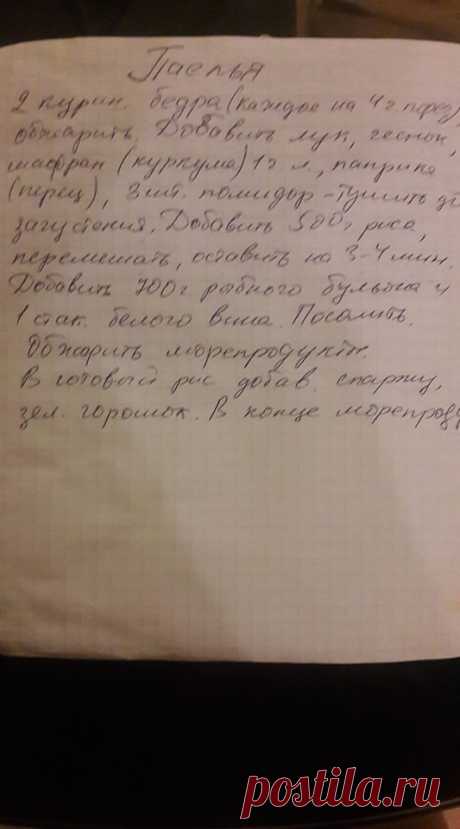 Паелья
2 курин. бедра (каждое на 4 г перез)
обжарить. Добавить лук, чеснок,
шафран (куркума) 1 г л., паприка
(перец), 3 шт. помидор - Тушить до
загустения. Добавить 500 г риса,
перемешать, оставить на 3-4 мин.
Добавить 700 г рыбного бульона и
1 стак. белого вина. Посолить.
Обжарить морепродукты.
В готовый рис добав. спаржу,
зел. горошок. В конце морепрод
postila.ru